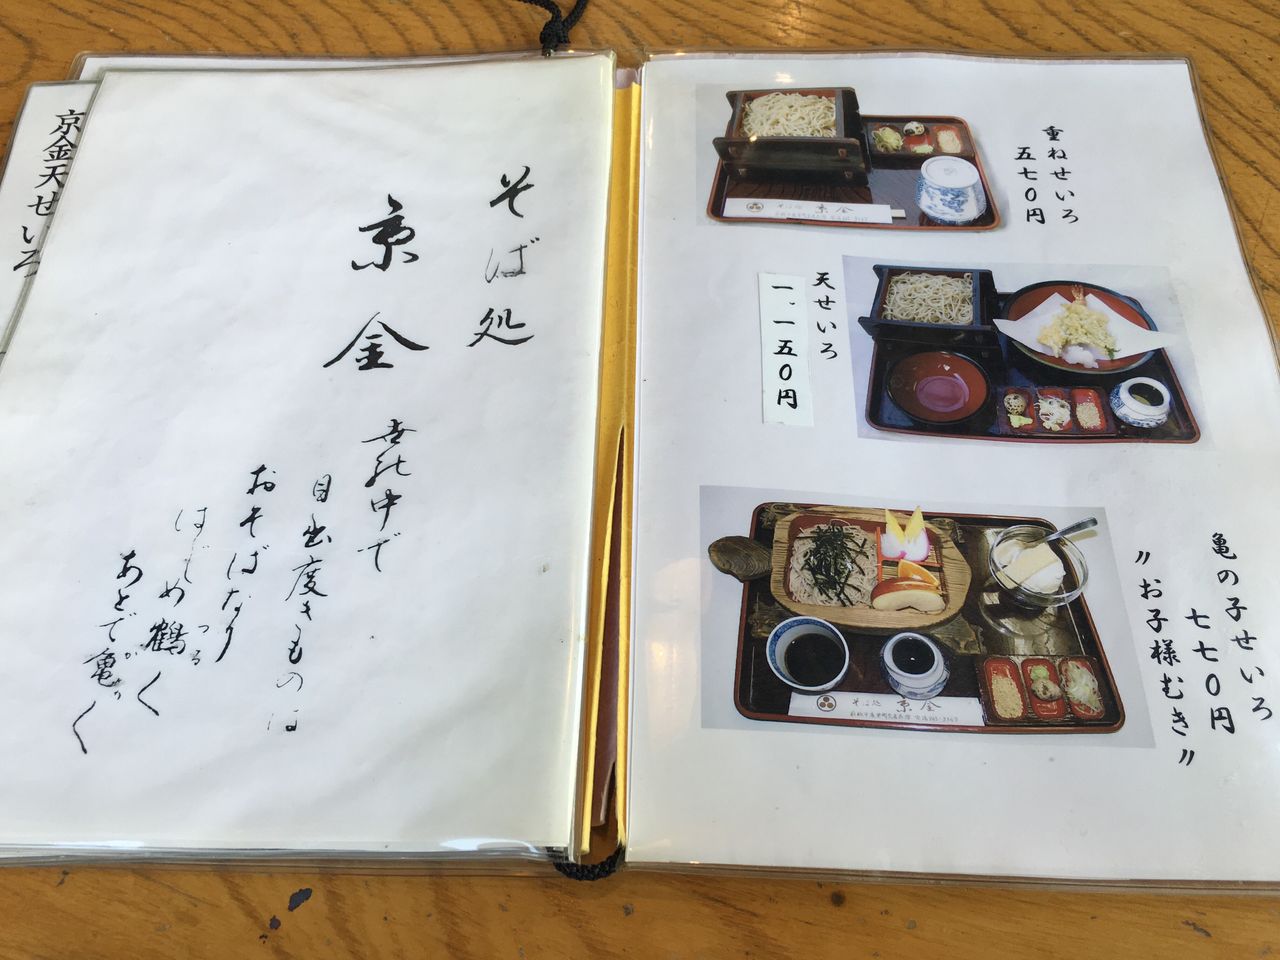 京金天せいろ
そば処
京金
世の中で
目出度きものは
おそばなり
はじめ鶴く
つる
あとで亀く
かめ
重ねせいろ
五七〇円
天せいろ
一、一五〇円
亀の子せいろ
七七〇円
〃お子様むき〃
そば処 京金
そば処 京金